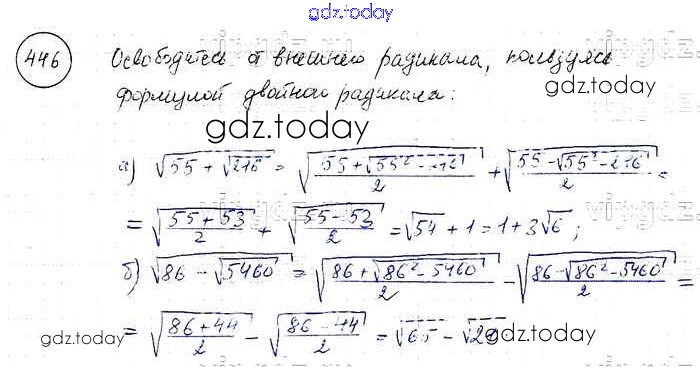 gdz.today
446
Освободитесь от внешнего радикала, пользуясь
формулой двойного радикала:
gdz.today
а) √(55 + √216) = √((55 + √(55² - 216))/2) + √((55 - √(55² - 216))/2) =
= √((55 + 53)/2) + √((55 - 53)/2) = √54 + 1 = 1 + 3√6;
б) √(86 - √5460) = √((86 + √(86² - 5460))/2) - √((86 - √(86² - 5460))/2) =
= √((86 + 44)/2) - √((86 - 44)/2) = √65 - √21
gdz.today
gdz.today
gdz.today